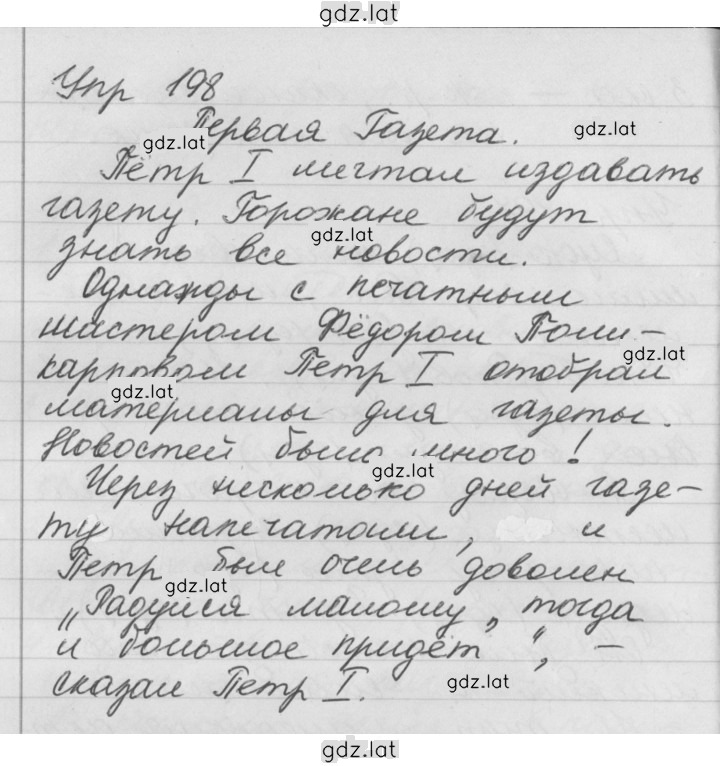 gdz.lat
Упр 198
Первая Газета.
gdz.lat
gdz.lat
Пётр I мечтал издавать
газету. Горожане будут
gdz.lat
знать все новости.
Однажды с печатным
мастером Фёдором Поли-
gdz.lat
карповом Петр I отобрал
gdz.lat
материалы для газеты.
Новостей было много!
gdz.lat
Через несколько дней газе-
ту напечатали, и
Петр был очень доволен
gdz.lat
„Радуйся малому, тогда
и большое придёт“, –
сказал Петр I.
gdz.lat
gdz.lat